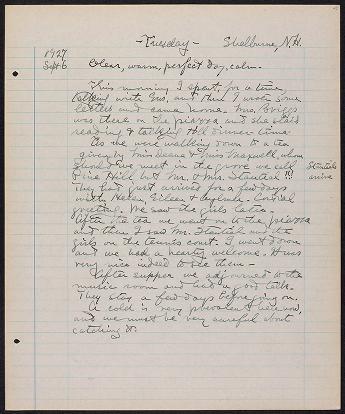 -Tuesday- Shelburne, N.H.
1927
Sept 6 Clear, warm, perfect day, calm.
This morning I spent, for a time,
talking with Eris, and then I wrote some
letters and came home. Mrs. Briggs
was there on the piazza and she staid
reading & talking till dinner time.
As we were walking down to a tea
given by Miss Deane & Miss Maxwell, whom
should we meet in the grove we call
Pine Hill but Mr. & Mrs. Stantial!!!
Stantials
arrive
They had just arrived for a few days
with Helen, Eileen & Cordial
greeting. We saw the girls later.
After the tea we went on to the piazza
and there I saw Mr. Stantial and the
girls on the tennis court. I went down
and we had a hearty welcome. It was
very nice indeed to see them-
After supper we adjourned to the
music room and had a good talk.
They stay a few days before going on.
A cold is very prevalent here now,
and we must be very careful about
catching it.